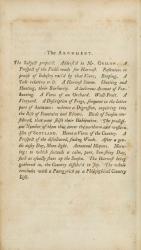 The ARGUMENT.
The Subject proposed. Address'd to Mr. ONSLOW. A
Prospect of the Fields ready for Harvest. Reflections in
praise of Industry rais'd by that View. Reaping. A
Tale relative to it. A Harvest Storm. Shooting and
Hunting, their Barbarity. A ludicrous Account of Fox-
hunting. A View of an Orchard. Wall-Fruit. A
Vineyard. A Description of Fogs, frequent in the latter
part of Autumn: whence a Digression, inquiring into
the Rise of Fountains and Rivers. Birds of Season con-
sidered, that now shift their Habitation. The prodigi-
ous Number of them that cover the northern and western
Isles of SCOTLAND. Hence a View of the Country. A
Prospect of the discoloured, fading Woods. After a gen-
tle dusky Day, Moon-light. Autumnal Meteors. Morn-
ing: to which succeeds a calm, pure, Sunshiny Day,
such as usually shuts up the Season. The Harvest being
gathered in, the Country dissolv'd in Joy. The whole
concludes with a Panegyric on a Philosophical Country
Life.